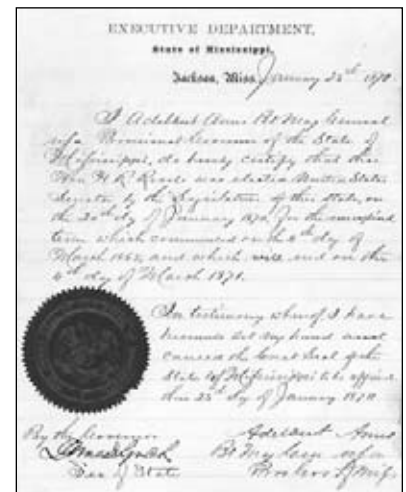 EXECUTIVE DEPARTMENT,
State of Mississippi,
Jackson, Miss. January 25th 1870.
I Adelbert Ames Bt Maj General
U.S.A. Provisional Governor of the State of
Mississippi, do hereby certify that the
Hon H R Revels was elected United States
Senator by the Legislature of this state, on
the 20th day of January 1870, for the unexpired
term which commenced on the 4th day of
March 1865, and which will end on the
4th day of March 1871.
In testimony whereof, I have
hereunto set my hand and
caused the Great Seal of the
State of Mississippi to be affixed
this 25th day of January 1870
By the Governor
Adelbert Ames
Sec of State
Bt Maj Gen U.S.A.